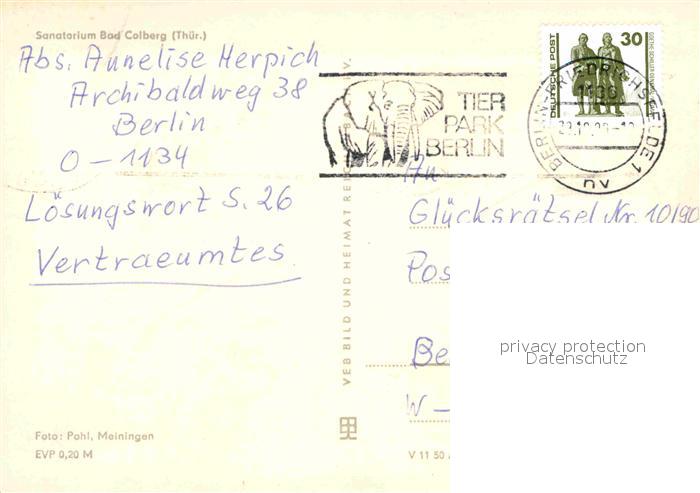 Sanatorium Bad Colberg (Thür.)
Abs. Annelise Herpich
Archibaldweg 38
Berlin
O-1134
Lösungswort S. 26
Vertraeumtes
Foto: Pohl, Meiningen
EVP 0,20 M
VEB BILD UND HEIMAT
V 11 50
TIER
PARK
BERLIN
DEUTSCHE POST
30
BERLIN-FRIEDRICHSFELDE 1
1136
nv
An
Glücksrätsel Nr. 10/90
Pos
Be
W-
privacy protection
Datenschutz